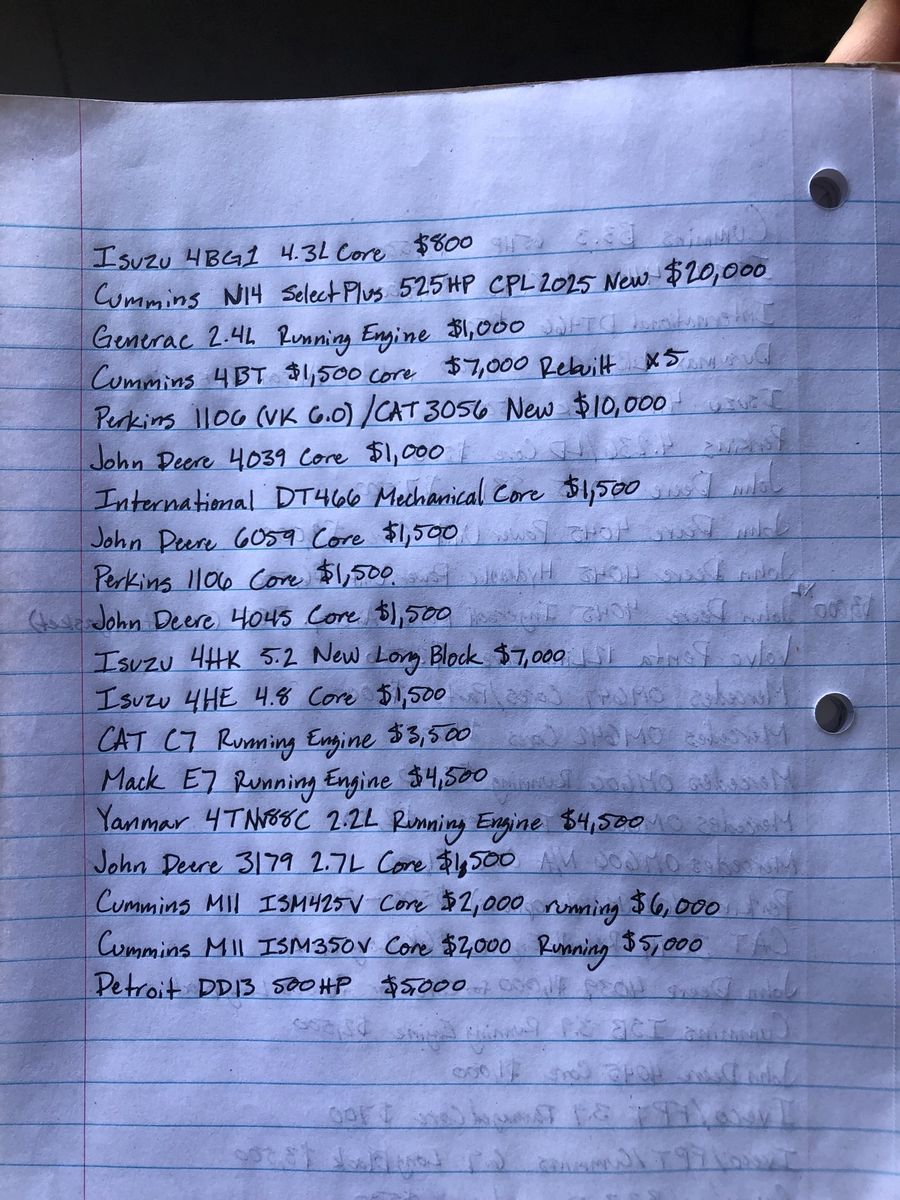 Isuzu 4BG1 4.3L Core $800
Cummins N14 Select Plus 525HP CPL 2025 New $20,000
Generac 2.4L Running Engine $1,000
Cummins 4BT $1,500 core $7,000 Rebuilt x5
Perkins 1106 (VK 6.0) / CAT 3056 New $10,000
John Deere 4039 Core $1,000
International DT466 Mechanical Core $1,500
John Deere 6059 Core $1,500
Perkins 1106 Core $1,500.
John Deere 4045 Core $1,500
Isuzu 4HK 5.2 New Long Block $7,000
Isuzu 4HE 4.8 Core $1,500
CAT C7 Running Engine $3,500
Mack E7 Running Engine $4,500
Yanmar 4TNV88C 2.2L Running Engine $4,500
John Deere 3179 2.7L Core $1,500
Cummins M11 ISM425V Core $2,000 running $6,000
Cummins M11 ISM350V Core $2,000 Running $5,000
Detroit DD13 500HP $5000